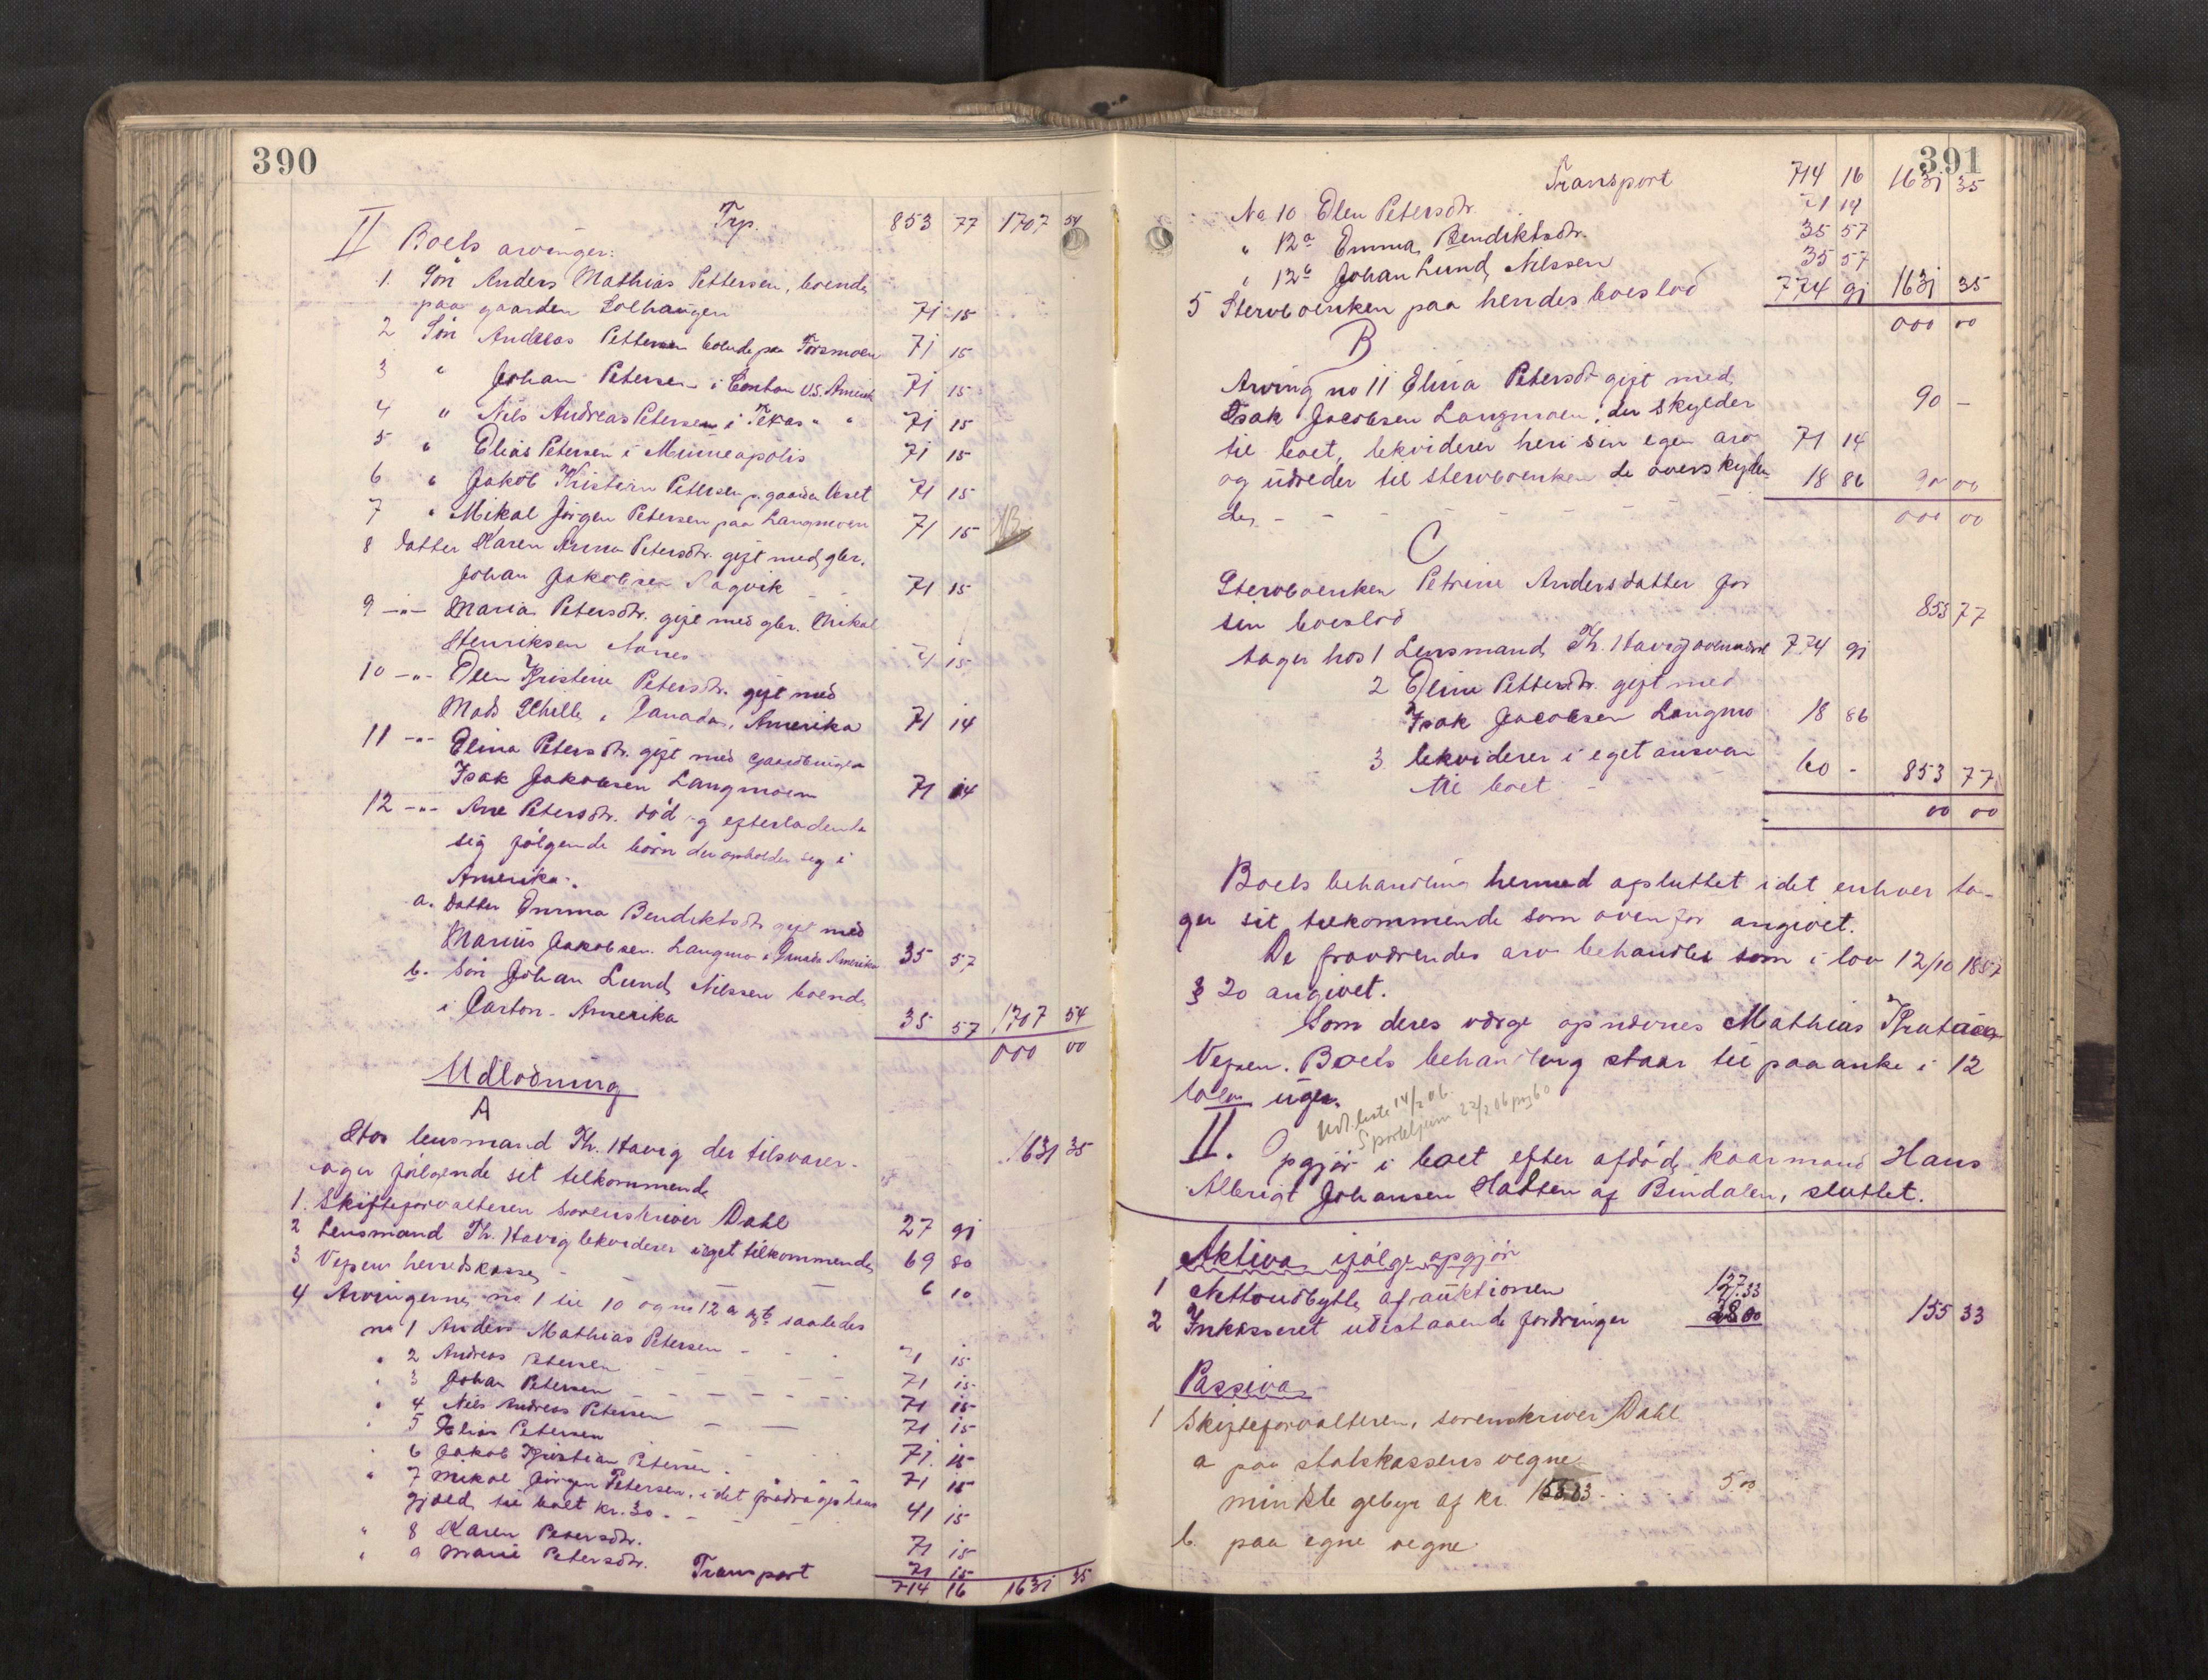 390
Trp. 853 77 1707 54
II Boets arvinger:
1. Søn Anders Mathias Pettersen, boende
paa gaarden Solhaugen 71 15
2 Søn Andreas Pettersen boende paa Torsmoen 71 15
3 " Johan Petersen i Canton U.S. Amerik 71 15
4 " Nils Andreas Petersen i Texas " " 71 15
5 " Elias Petersen i Minneapolis 71 15
6 " Jakob Kristian Petersen p. gaarden 71 15
7 " Mikal Jørgen Petersen paa Langmoen 71 15
8 Datter Karen Anna Petersdtr. gift med gbr.
Johan Jakobsen Sagvik - - 71 15
9 -"- Maria Petersdtr. gift med gbr. Mikal
Henriksen 71 15
10 -"- Olen Kristine Petersdtr. gift med
Mads Schille, i Canada, Amerika 71 14
11 -"- Elina Petersdtr. gift med gaardbruger
Isak Jakobsen Langmoen 71 14
12 -"- Ane Petersdtr. død og efterladende
sig følgende børn der opholder seg i
Amerika:
a. Datter Emma Bendiktsdtr gift med
Marius Jakobsen Langmo i Canada Amerika 35 57
b. Søn Johan Lund Nilssen boende
i Canton - Amerika 35 57 1707 54
000 00
Udlodning
A
Hos lensmand Th. Havig der tilsvarer - 1631 35
tager følgende sit tilkommende
1. Skifteforvalteren sorenskriver Dahl 27 91
2 Lensmand Th. Havig lekviderer i eget tilkommende 69 80
3 Vefsens herredskasse - - - 6 10
4 Arvingerne no 1 til 10 og no 12 a og b saaledes
no 1 Anders Mathias Petersen - - - 71 15
" 2 Andreas Petersen - - - 71 15
" 3 Johan Petersen - - - - - - 71 15
" 4 Nils Andreas Petersen - - 71 15
" 5 Elias Petersen 71 15
" 6 Jakob Kristian Petersen - 71 15
" 7 Mikal Jørgen Petersen, idet fradrages hans
gjæld til boet kr. 30. - - - 41 15
" 8 Karen Petersdtr. 71 15
" 9 Marie Petersdtr. 71 15
Transport 714 16 1631 35
391
Transport 714 16 1631 35
No 10 Olen Petersdtr. 71 14
" 12a Emma Bendiktsdtr. 35 57
" 12b Johan Lund Nilssen 35 57
5 Stervboenken paa hendes boeslod 774 91 1631 35
000 00
B
Arving no 11 Elina Petersdtr gift med
Isak Jacobsen Langmoen, der skylder 90 -
til boet, lekviderer heri sin egen arv 71 14
og udreder til stervboenken de overskyden 18 86 90 00
de, - - - - - - - 000 00
C
Stervboenken Petrine Andersdatter for
sin boeslod 853 77
tager hos 1 Lensmand Th. Havig ovennævnt 774 91
2 Eline Pettersdtr. gift med
Isak Jacobsen Langmo 18 86
3 lekviderer i eget ansvar
til boet - 60 - 853 77
00 00
Boets behandling hermed afsluttet idet enhver ta-
ger sit tilkommende som ovenfor angivet.
De fraværendes arv behandles som i lov 12/10 1857
§ 20 angivet.
Som deres værge opnævnes Mathias
Vefsen. Boets behandling staar til paaanke i 12
tolv uger.
Utl. liste 14/2 06.
Sporteljurn 22/2 06 pag 60
II. Opgjør i boet efter afdøde kaarmand Hans
Albrigt Johansen Hatten af Bindalen, sluttet.
Aktiva ifølge opgjør
1 Nettoudbytte af auktionen 127.33
2 Inkasseret udestaaende fordringer 28 00 155 33
Passiva
1 Skifteforvalteren, sorenskriver Dahl
a paa statskassens vegne
mindste gebyr af kr. 155.33 - - - - 5.00
b paa egne vegne